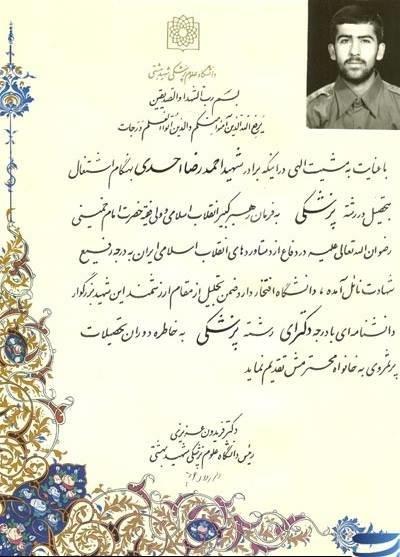 دانشگاه علوم پزشکی شهید بهشتی
بسم رب الشهداء والصدیقین
یرفع الله الذین آمنوا منکم والذین اوتوا العلم درجات
با عنایت به مشیت الهی در اینکه برادر شهید احمد رضا احدی بهنگام اشتغال
بتحصیل در رشته پزشکی به فرمان رهبر کبیر انقلاب اسلامی و ولی فقیه حضرت امام خمینی
رضوان الله تعالی علیه در دفاع از دستاوردهای انقلاب اسلامی ایران به درجه رفیع
شهادت نائل آمده، دانشگاه افتخار دارد ضمن تجلیل از مقام ارزشمند این شهید بزرگوار
دانشنامه ای با درجه دکترای رشته پزشکی به خاطره دوران تحصیلات
پرثمر وی به خانواده محترمش تقدیم نماید
دکتر فریدون عزیزی
رئیس دانشگاه علوم پزشکی شهید بهشتی